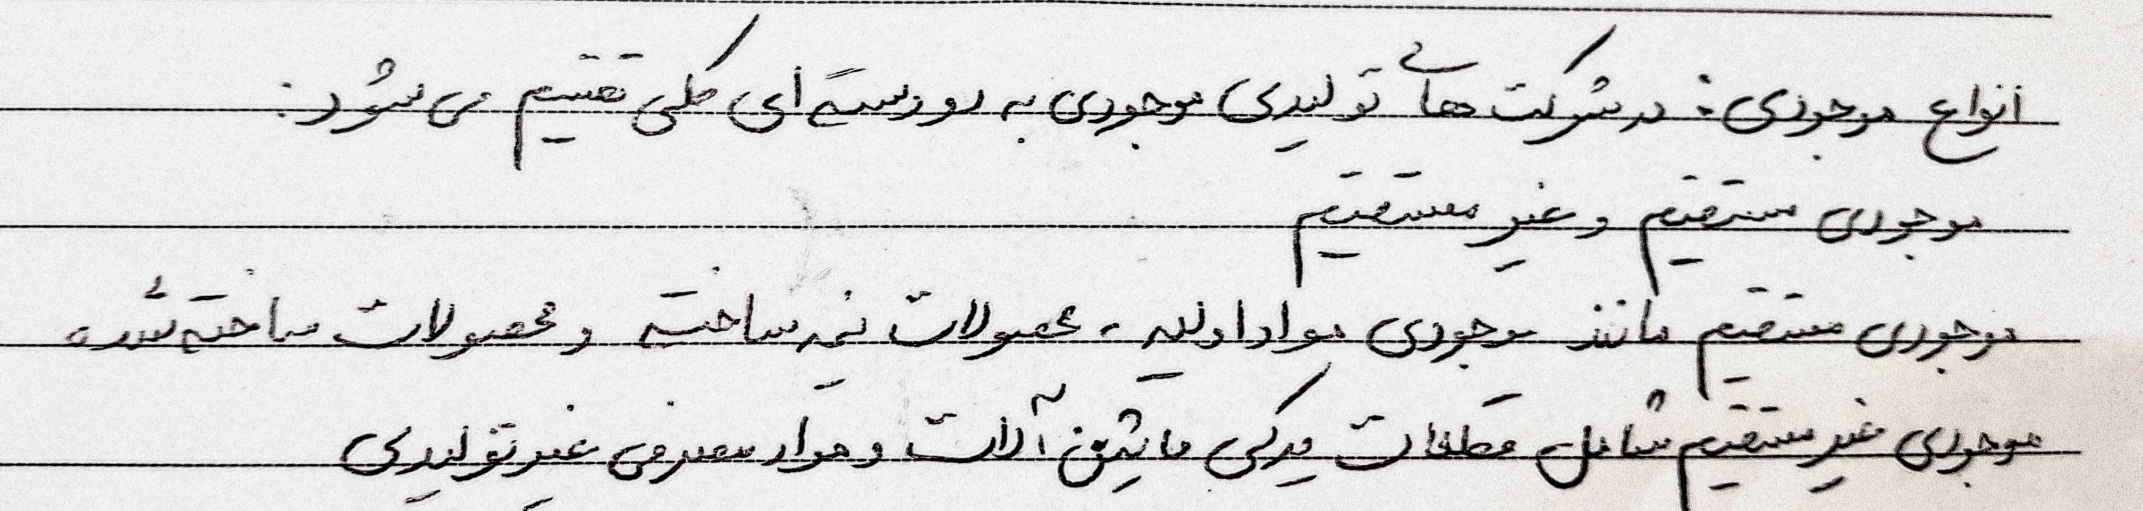 انواع موجودی: در شرکت های تولیدی موجودی به دو دسته ای کلی تقسیم می شود:
موجودی مستقیم و غیر مستقیم
موجودی مستقیم مانند موجودی مواد اولیه، محصولات نیمه ساخته و محصولات ساخته شده
موجودی غیر مستقیم شامل قطعات یدکی ماشین آلات و مواد مصرفی غیر تولیدی